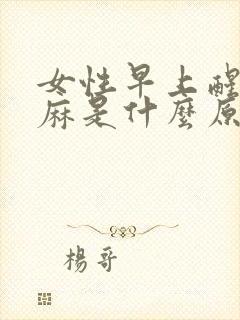 女性早上醒
麻是什麼原
楊哥